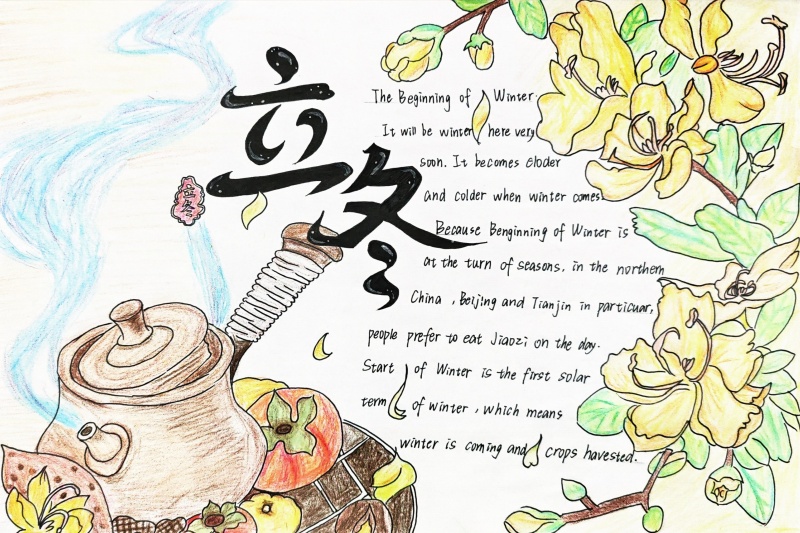 立冬
立冬
The Beginning of Winter.
It will be winter here very
soon. It becomes cloder
and colder when winter comes
Because Benginning of Winter is
at the turn of seasons, in the northern
China , Beijing and Tianjin in particuar,
people prefer to eat Jiaozi on the day.
Start of Winter is the first solar
term of winter , which means
winter is coming and crops havested.